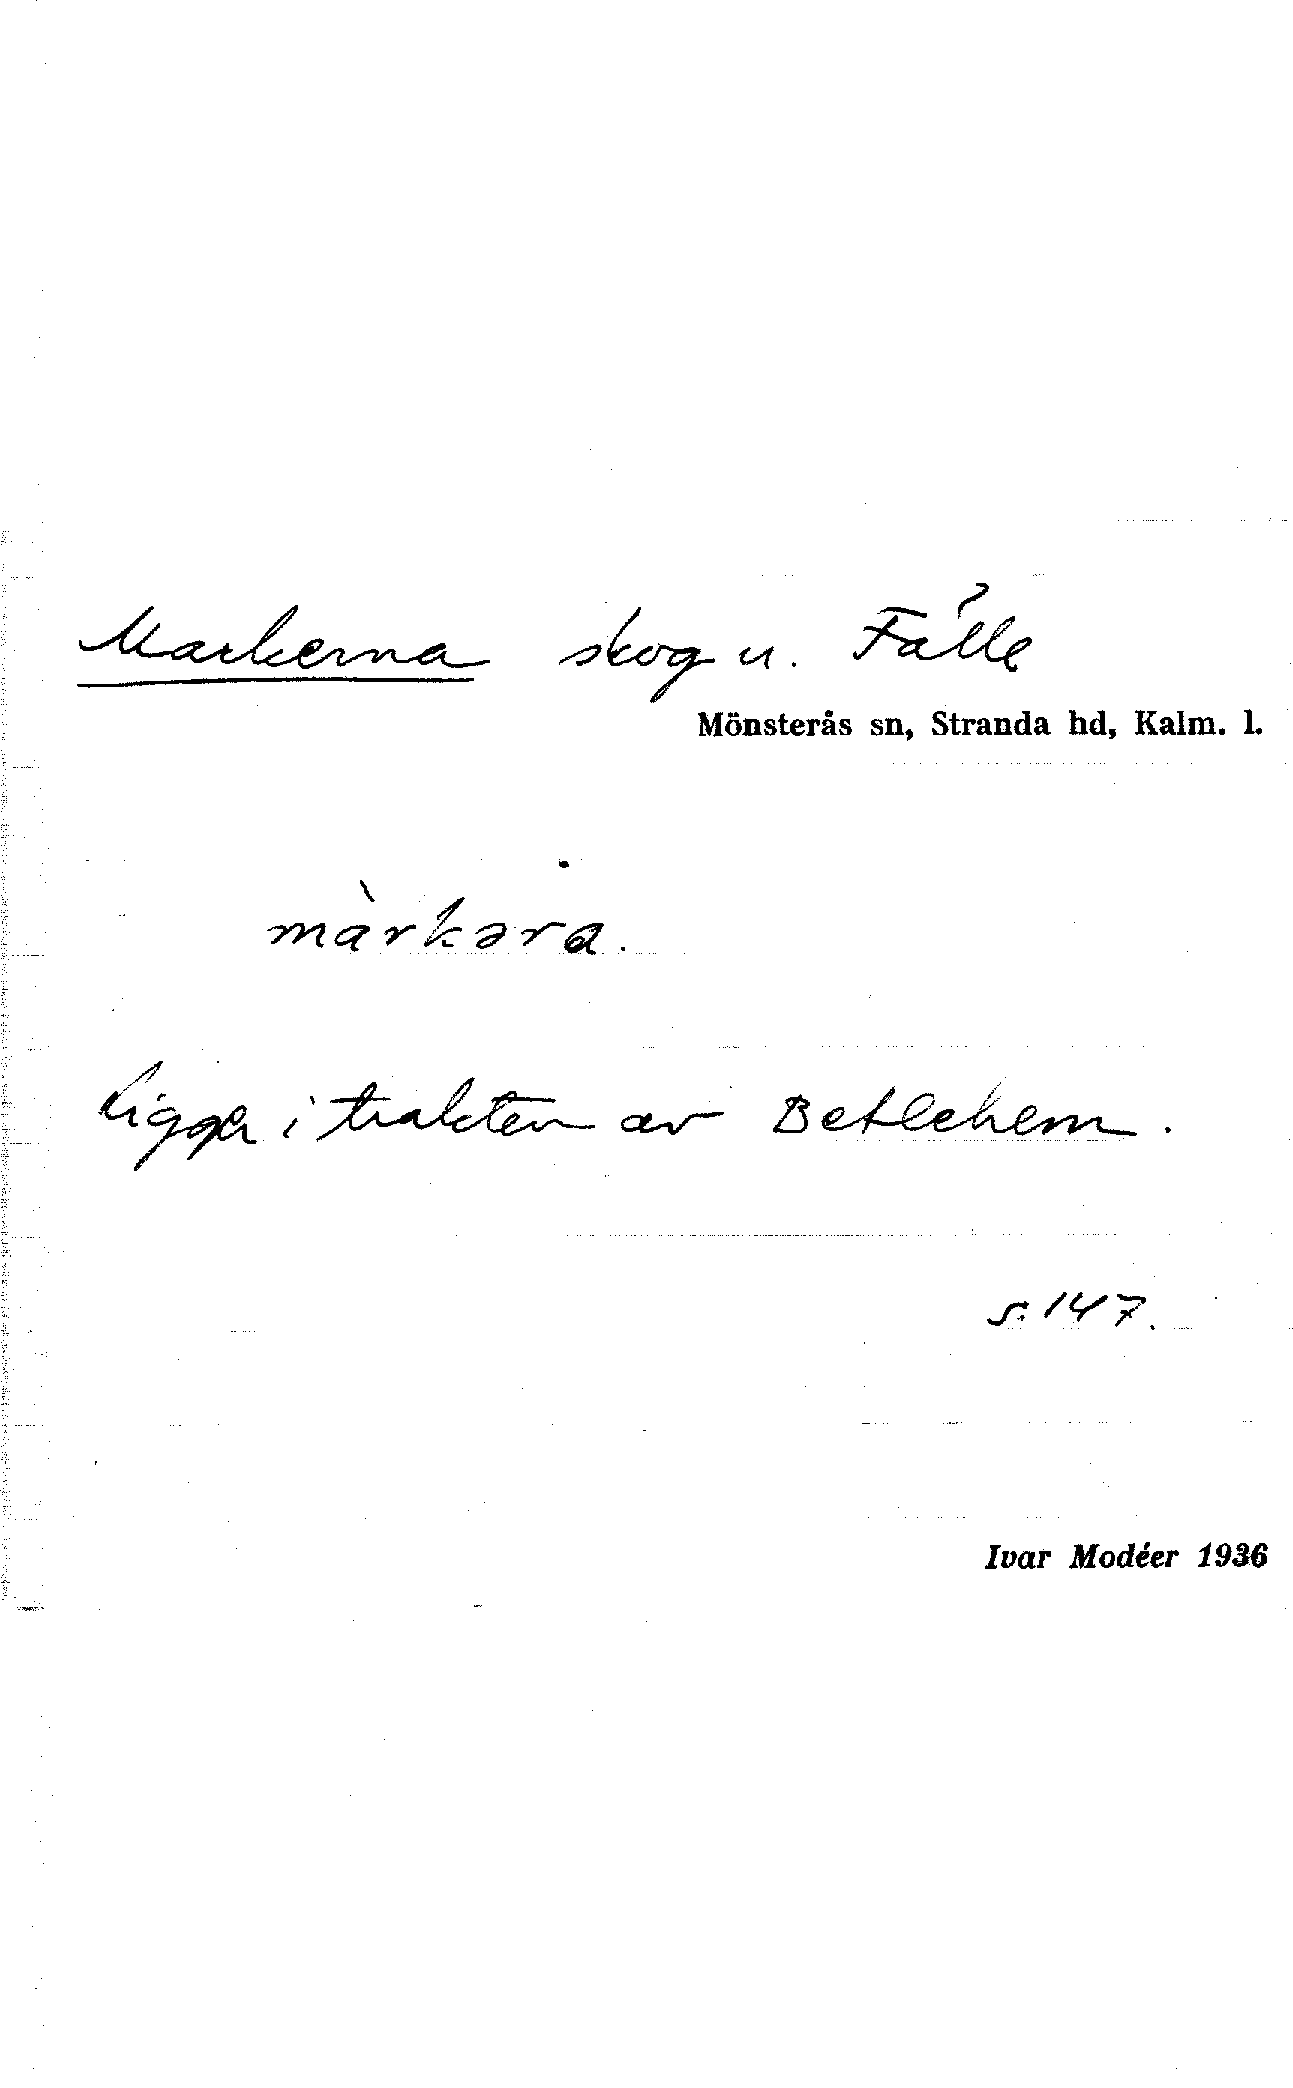 Markerna skog u. Fålle
Mönsterås sn, Stranda hd, Kalm. l.
màrkəra.
Ligger i trakten av Betlehem.
s. 147.
Ivar Modéer 1936